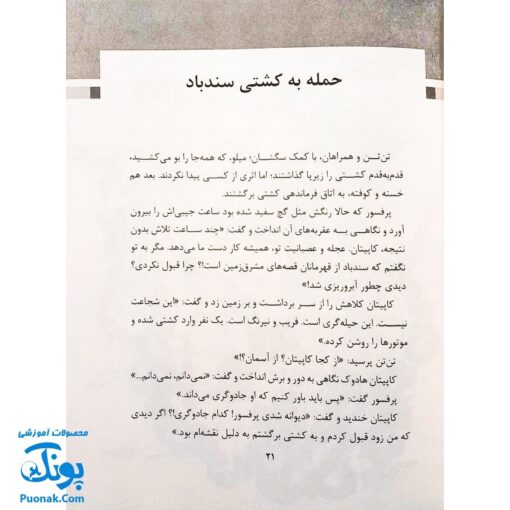 حمله به کشتی سندباد
تن‌تـن و همراهان، با کمک سگشان؛ میلو، که همه‌جا را بو می‌کشید،
قدم‌به‌قدم کشتـی را زیرپا گذاشتند؛ اما اثری از کسـی پیدا نکردند. بعد هم
خسته و کوفته، به اتاق فرماندهی کشتی برگشتند.
پرفسور که حالا رنگش مثل گچ سفید شده بود ساعت جیبی‌اش را بیرون
آورد و نگاهـی بـه عقربه‌های آن انداخت و گفت: «چند سـاعت تلاش بدون
نتیجه، کاپیتان. عجله و عصبانیت تو، همیشه کار دست ما می‌دهد. مگر به تو
نگفتم که سندباد از قهرمانان قصه‌های مشرق‌زمین است!؟ چرا قبول نکردی؟
دیدی چطور آبروریزی شد!»
کاپیتان کلاهش را از سـر برداشـت و بر زمین زد و گفت: «این شجاعت
نیسـت. این حیله‌گری است. فریب و نیرنگ است. یک نفر وارد کشتی شده و
موتورها را روشن کرده.»
تن‌تن پرسید: «از کجا کاپیتان؟ از آسمان؟!»
کاپیتان هادوک نگاهی به دور و برش انداخت و گفت: «نمی‌دانم، نمی‌دانم...»
پرفسور گفت: «پس باید باور کنیم که او جادوگری می‌داند.»
کاپیتان خندید و گفت: «دیوانه شدی پرفسور! کدام جادوگری!؟ اگر دیدی
که من زود قبول کردم و به کشتی برگشتم به دلیل نقشه‌ام بود.»
۲۱
محصولات آموزشی
پونک
Puonak.Com